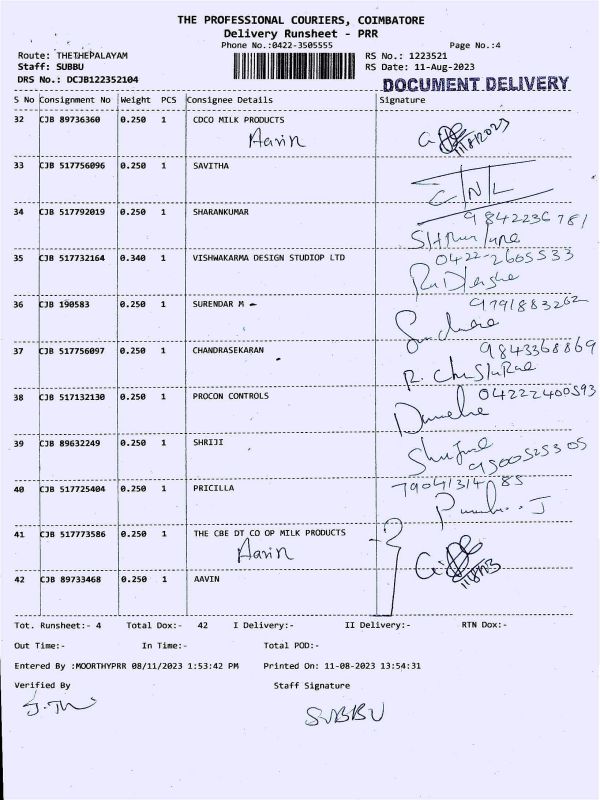 THE PROFESSIONAL COURIERS, COIMBATORE
Delivery Runsheet - PRR
Phone No.:0422-3505555 Page No.:4
Route: THETHEPALAYAM RS No.: 1223521
Staff: SUBBU RS Date: 11-Aug-2023
DRS No.: DCJB122352104 DOCUMENT DELIVERY
S No Consignment No Weight PCS Consignee Details Signature
32 CJB 89736360 0.250 1 CDCO MILK PRODUCTS
Aavin 11/8/2023
33 CJB 517756096 0.250 1 SAVITHA
CNL
34 CJB 517792019 0.250 1 SHARANKUMAR 9842236781
35 CJB 517732164 0.340 1 VISHWAKARMA DESIGN STUDIOP LTD 0422-2605533
36 CJB 190583 0.250 1 SURENDAR M 9791883262
37 CJB 517756097 0.250 1 CHANDRASEKARAN 9843368869
38 CJB 517132130 0.250 1 PROCON CONTROLS 04222400593
39 CJB 89632249 0.250 1 SHRIJI
9500525305
40 CJB 517725404 0.250 1 PRICILLA 7904131485
41 CJB 517773586 0.250 1 THE CBE DT CO OP MILK PRODUCTS
Aavin
42 CJB 89733468 0.250 1 AAVIN
Tot. Runsheet:- 4 Total Dox:- 42 I Delivery:- II Delivery:- RTN Dox:-
Out Time:- In Time:- Total POD:-
Entered By :MOORTHYPRR 08/11/2023 1:53:42 PM Printed On: 11-08-2023 13:54:31
Verified By Staff Signature
SUBBU